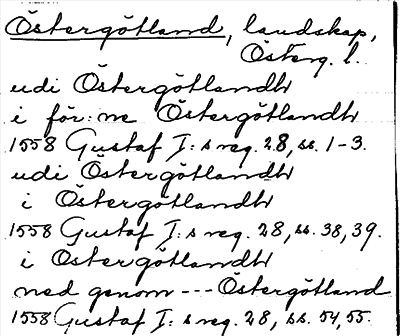 Östergötland, landskap,
Österg. l.
udi Östergötlandh
i för: ne Östergötlandh
1558 Gustaf I: s reg. 28, ss. 1-3.
udi Östergötlandh
i Östergötlandh
1558 Gustaf I: s reg. 28, ss. 38, 39.
i Östergötlandh
ned genom --- Östergötland
1558 Gustaf I: s reg. 28, ss. 54, 55.